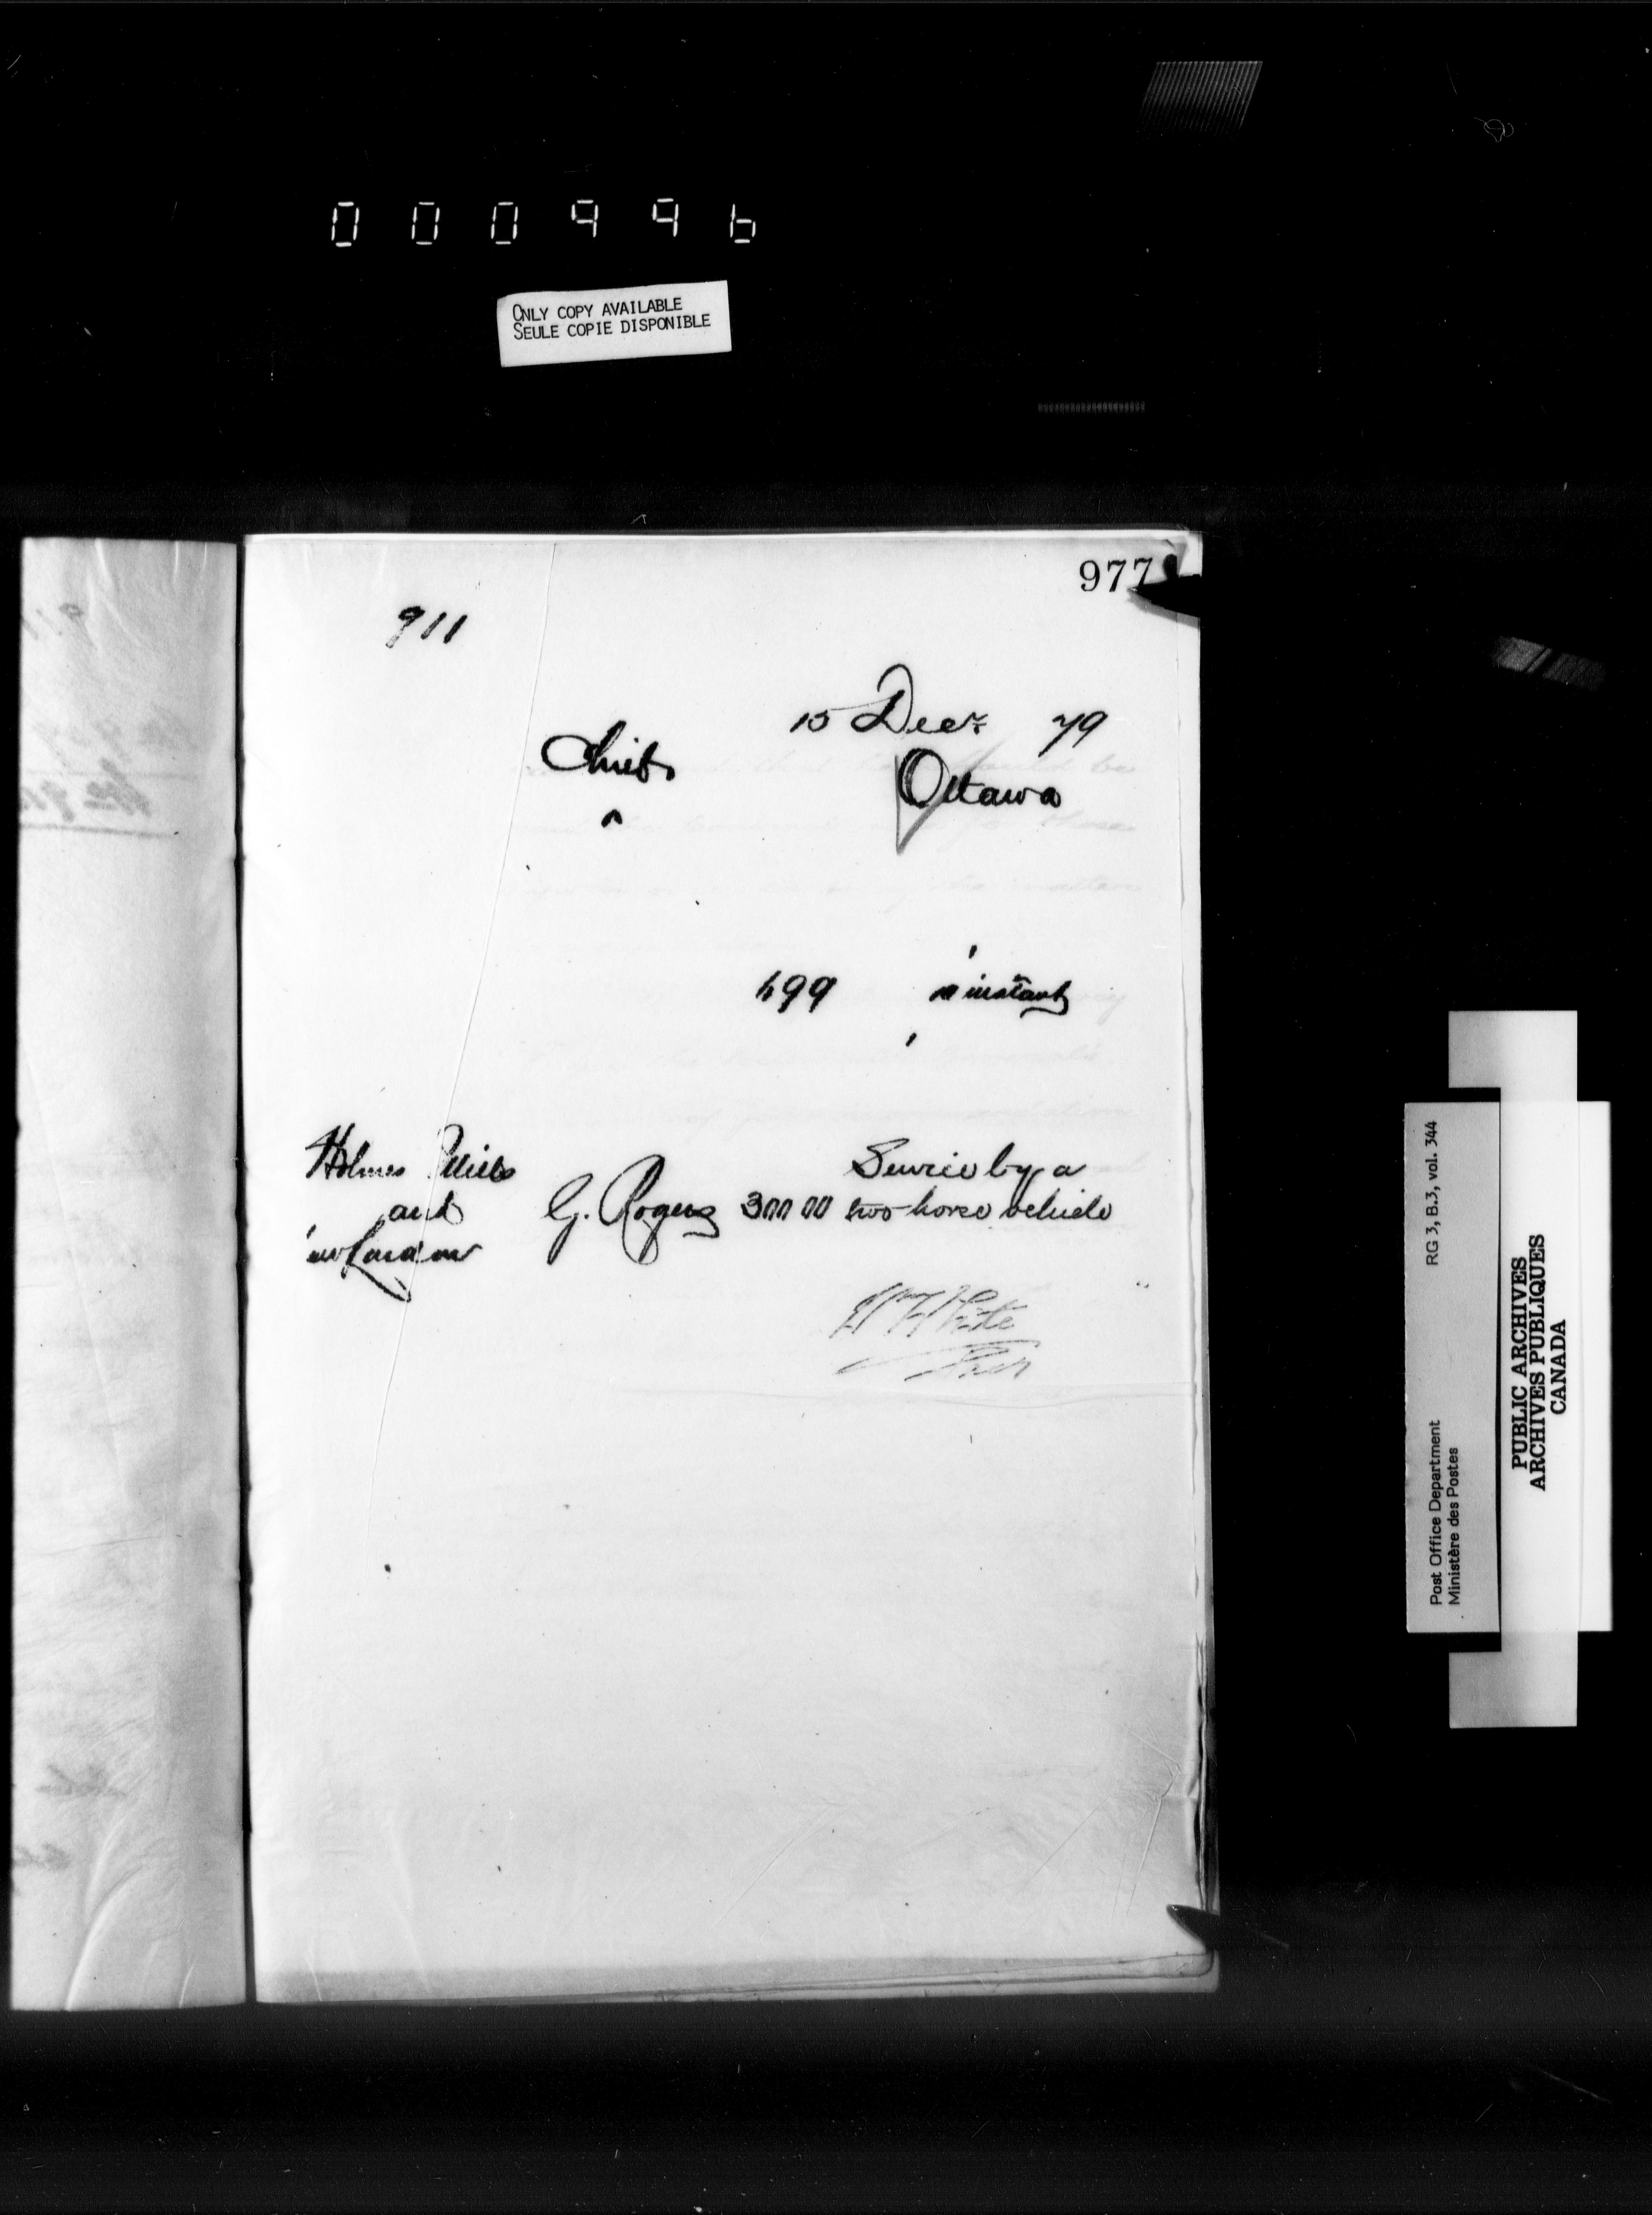 000996
ONLY COPY AVAILABLE
SEULE COPIE DISPONIBLE
977
911
15 Decr 79
Chief
Ottawa
499 instant
Holmes Mills
and
G. Rogers 300 00
Service by a
two-horse vehicle
White
RG 3, B.3, vol. 344
Post Office Department
Ministère des Postes
PUBLIC ARCHIVES
ARCHIVES PUBLIQUES
CANADA